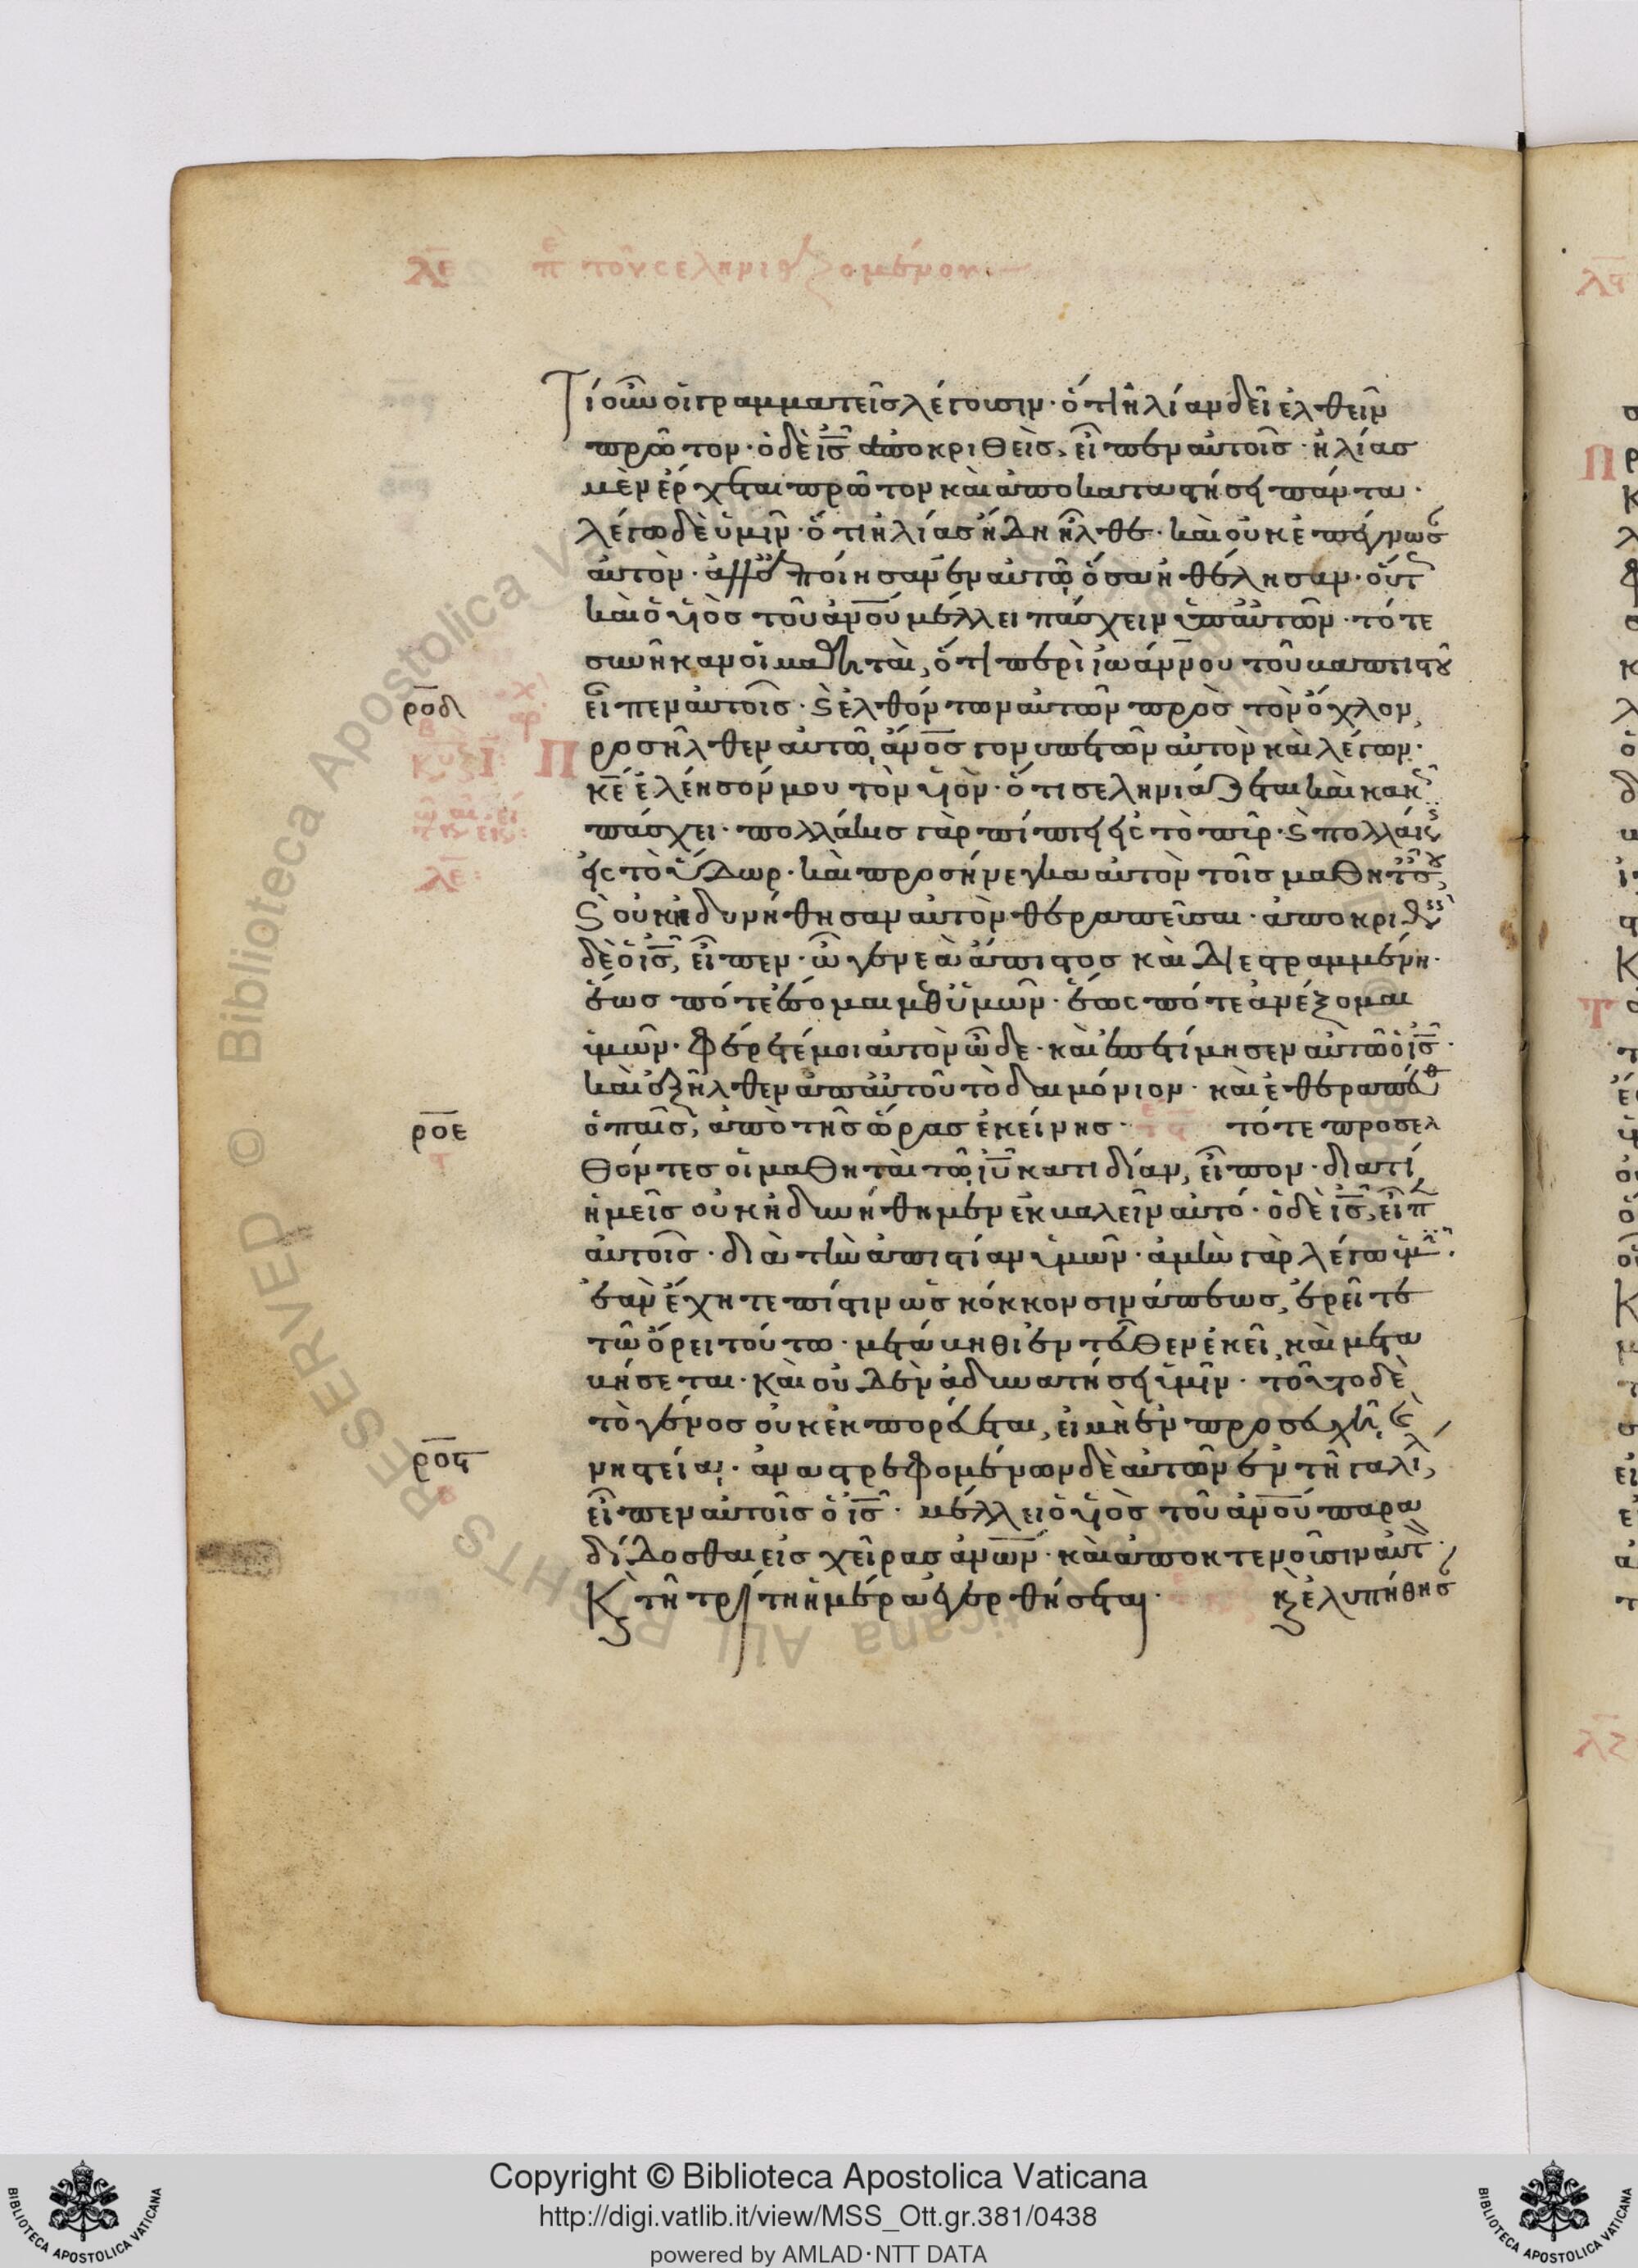 λε π̅ε̂ τοῦ σεληνιαζομένου
Τί οὖν οἱ γραμματεῖς λέγουσιν· ὅτι ἠλίαν δεῖ ἐλθεῖν
πρῶτον· ὁ δὲ ις̅ ἀποκριθεὶς, εἶπεν αὐτοῖς· ἠλίας
μὲν ἔρχεται πρῶτον καὶ ἀποκαταστήσει πάντα·
λέγω δὲ ὑμῖν· ὅτι ἠλίας ἤδη ἦλθε· καὶ οὐκ ἐπέγνωσ
αὐτὸν· ἀλλ' ἐποίησαν ἐν αὐτῶ, ὅσα ἠθέλησαν· οὕτ
καὶ ὁ υἱὸς τοῦ ἀν̅ο̅υ̅ μέλλει πάσχειν ὑπ' αὐτῶν· τότε
συνῆκαν οἱ μαθηταὶ, ὅτι περὶ ἰωάννου τοῦ βαπτιστοῦ
ρ̅ο̅δ̅ εἶπεν αὐτοῖς· ϛ ἐλθόντων αὐτῶν πρὸς τὸν ὄχλον,
Προσῆλθεν αὐτῶ, ἄν̅ο̅ς̅ γονυπετῶν αὐτὸν καὶ λέγων·
κ̅ε̅ ἐλέησόν μου τὸν υἱὸν· ὅτι σεληνιάζεται καὶ κακ
πάσχει· πολλάκις γὰρ πίπτει εἰς τὸ πῦρ· ϛ πολλάκις
λε̅: εἰς τὸ ὕδωρ· καὶ προσήνεγκα αὐτὸν τοῖς μαθητ σου,
ϛ οὐκ ἠδυνήθησαν αὐτὸν θεραπεῦσαι· ἀποκριθεὶς
δὲ ὁ ι̅ς̅, εἶπεν· ὦ γενεὰ ἄπιστος καὶ διεστραμμένη·
ἕως πότε ἔσομαι μεθ' ὑμῶν· ἕως πότε ἀνέξομαι
ὑμῶν· φέρετέ μοι αὐτὸν ὧδε· καὶ ἐπετίμησεν αὐτῶ ὁ ι̅ς̅·
καὶ ἐξῆλθεν ἀπ' αὐτοῦ τὸ δαιμόνιον· καὶ ἐθεραπεύθ
ρ̅ο̅ε̅ ὁ παῖς, ἀπὸ τῆς ὥρας ἐκείνης· τότε προσελ
θόντες οἱ μαθηταὶ τῶ ι̅υ̅ κατιδίαν, εἶπον· διατί
ἡμεῖς οὐκ ἠδυνήθημεν ἐκβαλεῖν αὐτό· ὁ δὲ ι̅ς̅, εἶπ
αὐτοῖς· διὰ τὴν ἀπιστίαν ὑμῶν· ἀμὴν γὰρ λέγω ὑμ
ἐὰν ἔχητε πίστιν ὡς κόκκον σινάπεως, ἐρεῖτε
τῶ ὄρει τούτω· μετάβηθι ἐντεῦθεν ἐκεῖ, καὶ μετα
βήσεται· καὶ οὐδὲν ἀδυνατήσει ὑμῖν· τοῦτο δὲ
τὸ γένος οὐκ ἐκπορεύεται, εἰ μὴ ἐν προσευχῆ ϛ
ρ̅ο̅ϛ̅ νηστεία· ἀναστρεφομένων δὲ αὐτῶν ἐν τῆ γαλιλ,
εἶπεν αὐτοῖς ὁ ι̅ς̅· μέλλει ὁ υἱὸς τοῦ ἀν̅ο̅υ̅ παρα
δίδοσθαι εἰς χεῖρας ἀν̅ω̅ν̅· καὶ ἀποκτενοῦσιν αὐτ
Κ τῆ τρίτη ἡμέρα ἐγερθήσεται· κ ἐλυπήθησ
Copyright © Biblioteca Apostolica Vaticana
http://digi.vatlib.it/view/MSS_Ott.gr.381/0438
powered by AMLAD·NTT DATA